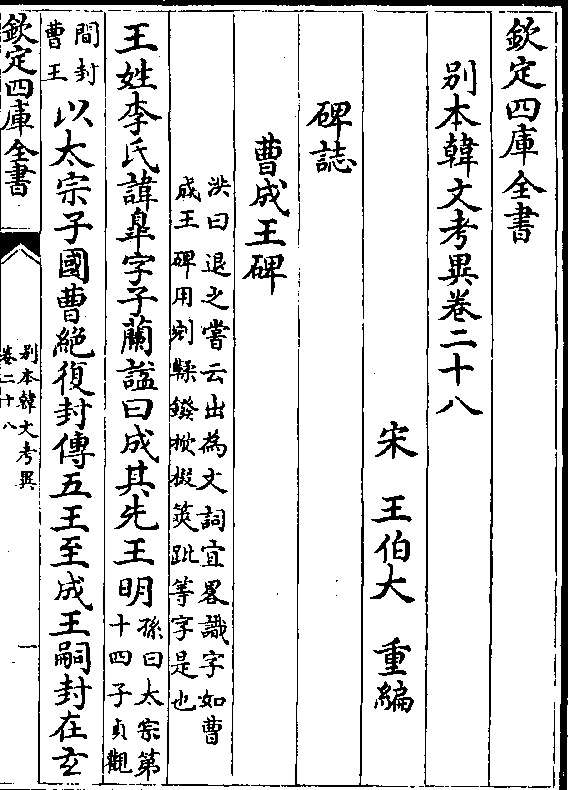 欽定四庫全書
别本韓文考異卷二十八
宋 王伯大 重編
碑誌
曹成王碑
洪曰退之嘗云出為文詞宜畧識字如曹
成王碑用剜鞣鏺掀撥筴跐等字是也
王姓李氏諱臯字子蘭謚曰成其先王明孫曰太宗第
十四子貞觀
間封
曹王以太宗子國曹絶復封傳五王至成王嗣封在玄
欽定四庫全書
别本韓文考異
卷二十八
一